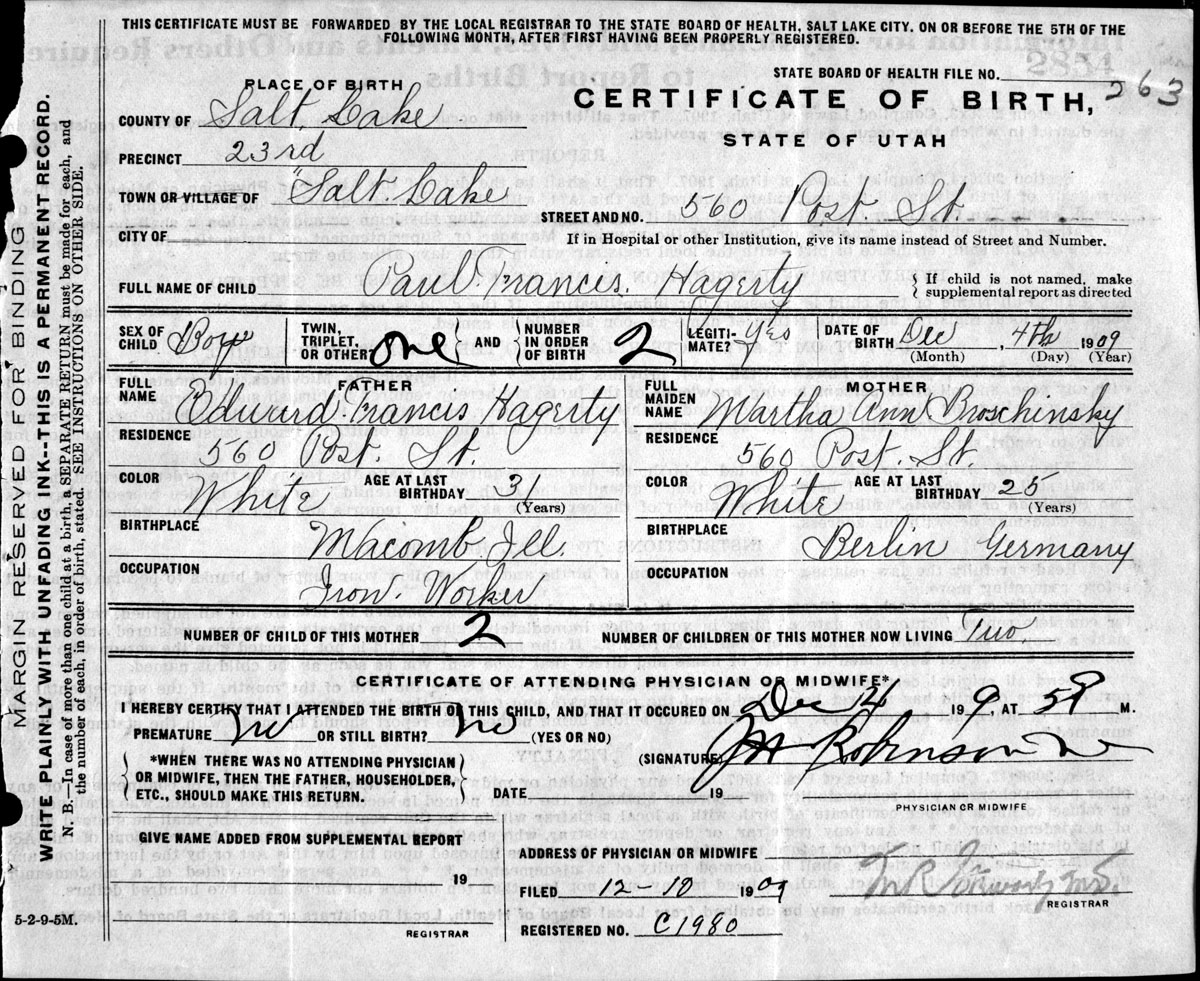 THIS CERTIFICATE MUST BE FORWARDED BY THE LOCAL REGISTRAR TO THE STATE BOARD OF HEALTH, SALT LAKE CITY. ON OR BEFORE THE 5TH OF THE
FOLLOWING MONTH, AFTER FIRST HAVING BEEN PROPERLY REGISTERED.
MARGIN RESERVED FOR BINDING
WRITE PLAINLY WITH UNFADING INK--THIS IS A PERMANENT RECORD.
N. B.—In case of more than one child at a birth, a SEPARATE RETURN must be made for each, and
the number of each, in order of birth, stated. SEE INSTRUCTIONS ON OTHER SIDE.
STATE BOARD OF HEALTH FILE NO. 263
PLACE OF BIRTH
CERTIFICATE OF BIRTH,
STATE OF UTAH
COUNTY OF Salt Lake
PRECINCT 23rd
TOWN OR VILLAGE OF Salt Lake
STREET AND NO. 560 Post. St.
CITY OF
If in Hospital or other Institution, give its name instead of Street and Number.
FULL NAME OF CHILD Paul Frances. Hagerty
} If child is not named, make
supplemental report as directed
SEX OF CHILD Boy
TWIN, TRIPLET, OR OTHER one } AND { NUMBER IN ORDER OF BIRTH 2
LEGITI-MATE? Yes
DATE OF BIRTH Dec, 4th 1909
(Month) (Day) (Year)
FATHER
FULL NAME Edward. Francis Hagerty
RESIDENCE 560 Post. St.
COLOR White AGE AT LAST BIRTHDAY 31 (Years)
BIRTHPLACE Macomb Ill.
OCCUPATION Iron. Worker
MOTHER
FULL MAIDEN NAME Martha Ann Broschinsky
RESIDENCE 560 Post. St.
COLOR White AGE AT LAST BIRTHDAY 25 (Years)
BIRTHPLACE Berlin Germany
OCCUPATION
NUMBER OF CHILD OF THIS MOTHER 2 NUMBER OF CHILDREN OF THIS MOTHER NOW LIVING Two
CERTIFICATE OF ATTENDING PHYSICIAN OR MIDWIFE*
I HEREBY CERTIFY THAT I ATTENDED THE BIRTH OF THIS CHILD, AND THAT IT OCCURED ON Dec 4 19 9 AT M.
PREMATURE No OR STILL BIRTH? No (YES OR NO)
(SIGNATURE) Robinson
{ *WHEN THERE WAS NO ATTENDING PHYSICIAN
OR MIDWIFE, THEN THE FATHER, HOUSEHOLDER,
ETC., SHOULD MAKE THIS RETURN. }
DATE 19
PHYSICIAN OR MIDWIFE
GIVE NAME ADDED FROM SUPPLEMENTAL REPORT
19
REGISTRAR
ADDRESS OF PHYSICIAN OR MIDWIFE
FILED 12-10 1909
REGISTRAR
REGISTERED NO. C1980
5-2-9-5M.